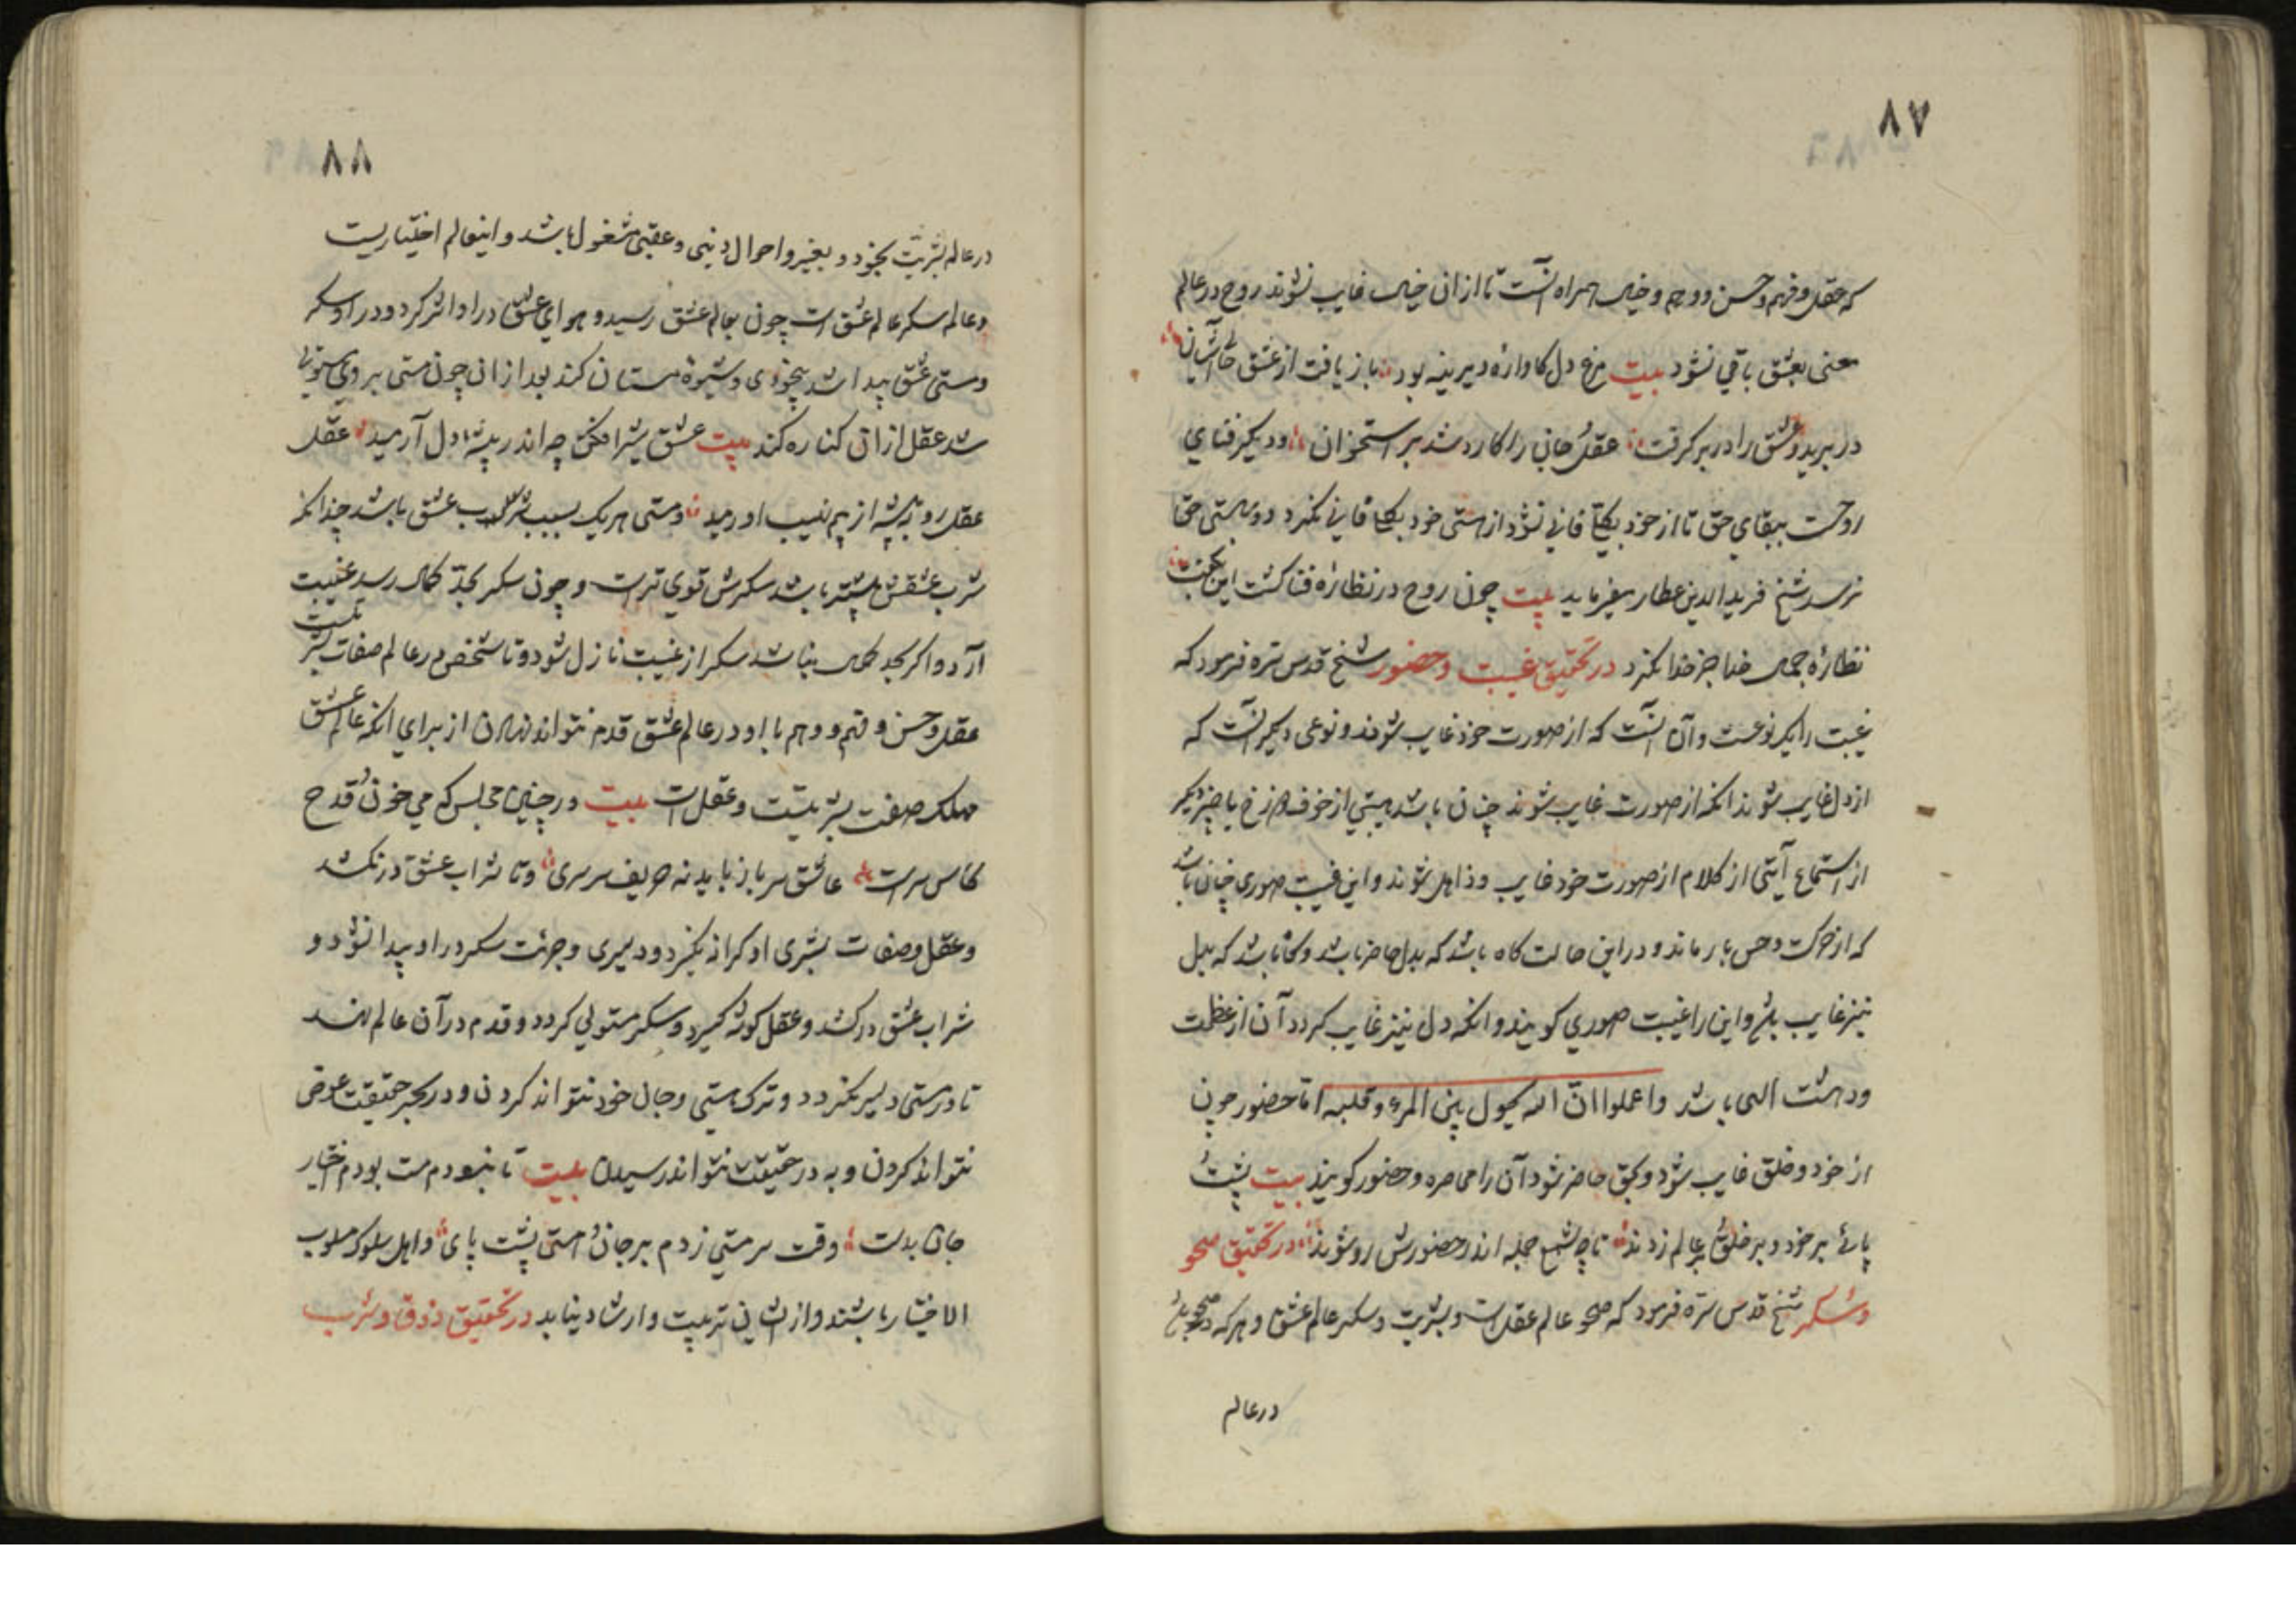 ۸۷
که عقل و فهم و حس و وهم و خیال همراه آنست تا از ان خیال غایب نشوند روح در عالم
معنی بعشق باقی نشود بیت مرغ دل کاواره دیرینه بود باز یافت از عشق حالی آشیان
در برید و عشق را در بر کرفت عقل جانی را کارد شد بر استخوان و دیکر فنای
روحست ببقای حق تا از خود بکلی فانی نشود از هستی خود بکلی فانی نکردد و بهستی حق
نرسد شیخ فرید الدین عطار میفرماید بیت چون روح در نظاره فنا کشت این بکفت
نظاره جمال خدا جز خدا نکرد در تحقیق غیبت و حضور شیخ قدس سره فرمود که
غیبت را یک نوعست و آن آنست که از صورت خود غایب شوند و نوعی دیکر آنست که
از دل غایب شوند انکه از صورت غایب شوند چنان باشد هیبتی از خوف دوزخ یا چیز دیکر
از استماع آیتی از کلام از صورت خود غایب و ذاهل شوند و این غیبت صوری چنان باشد
که از حرکت و حس باز ماند و در این حالت کاه باشد که بدل حاضر باشد و کاه باشد که بدل
نیز غایب باشد و این را غیبت صوری کویند و انکه دل نیز غایب کردد آن از عظمت
و دهشت الهی باشد واعلموا ان الله یحول بین المرء و قلبه اما حضور چون
از خود و خلق غایب شود و بحق حاضر شود آن را محاضره و حضور کویند بیت پشت
پائے بر خود و بر خلق عالم زدند تا چو شمع جمله اندر حضورش رو شوند در تحقیق صحو
و سکر شیخ قدس سره فرمود که صحو عالم عقل است و بشریت و سکر عالم عشق و هر که در صحو باشد
در عالم
۸۸
در عالم بشریت بخود و بغیر و احوال دنیی و عقبی مشغول باشد و اینعالم اختیاریست
و عالم سکر عالم عشق است چون بعالم عشق رسید و هوای عشق در او اثر کرد و در او سکر
و مستی عشق پیدا شد بیخودی و شیوه مستان کند بعد از ان چون مستی بر وی مستولی
شد عقل از ان کناره کند بیت عشق شیر افکن چو اندر بیشه دل آرمید عقل
عقل روبه پیشه از بیم نهیب او رمید و مستی هر یک بسبب شرب عشق باشد چندانکه
شرب عشقش بیشتر باشد سکرش قوی تر است و چون سکر بحد کمال رسد غیبت
آرد و اکر بحد کمال نباشد سکر از غیبت نازل شود و تا شخص در عالم صفات بشریت است
عقل و حس و فهم و وهم با او در عالم عشق قدم نتواند نهادن از برای انکه عالم عشق
مهلک صفت بشریتست و عقل است بیت در چنین مجلس که می خون قدح
کاس سر است عاشق سرباز باید نه حریف سرسری و تا شراب عشق در نکشد
و عقل و صفات بشری او کرانه نکیرد و دلیری و جرئت سکر در او پیدا نشود و
شراب عشق در کشد و عقل کوشه کیرد و سکر مستولی کردد و قدم در آن عالم نهد
تا در مستی دلیر نکردد و ترک هستی و جان خود نتواند کردن و در بحر حقیقت غوص
نتواند کردن و به در حقیقت نتواند رسیدن بیت تا نبودم مست بودم اختیار
جان بدست وقت سر مستی زدم بر جان و هستی پشت پای و اهل سلوک مسلوب
الاختیار باشند و از ایشان تربیت و ارشاد نیاید در تحقیق ذوق و شرب